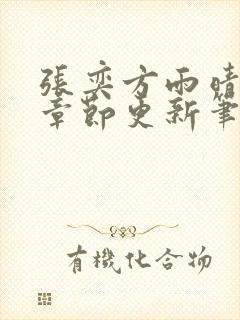 張奕方雨晴
章節更新筆
有機化合物